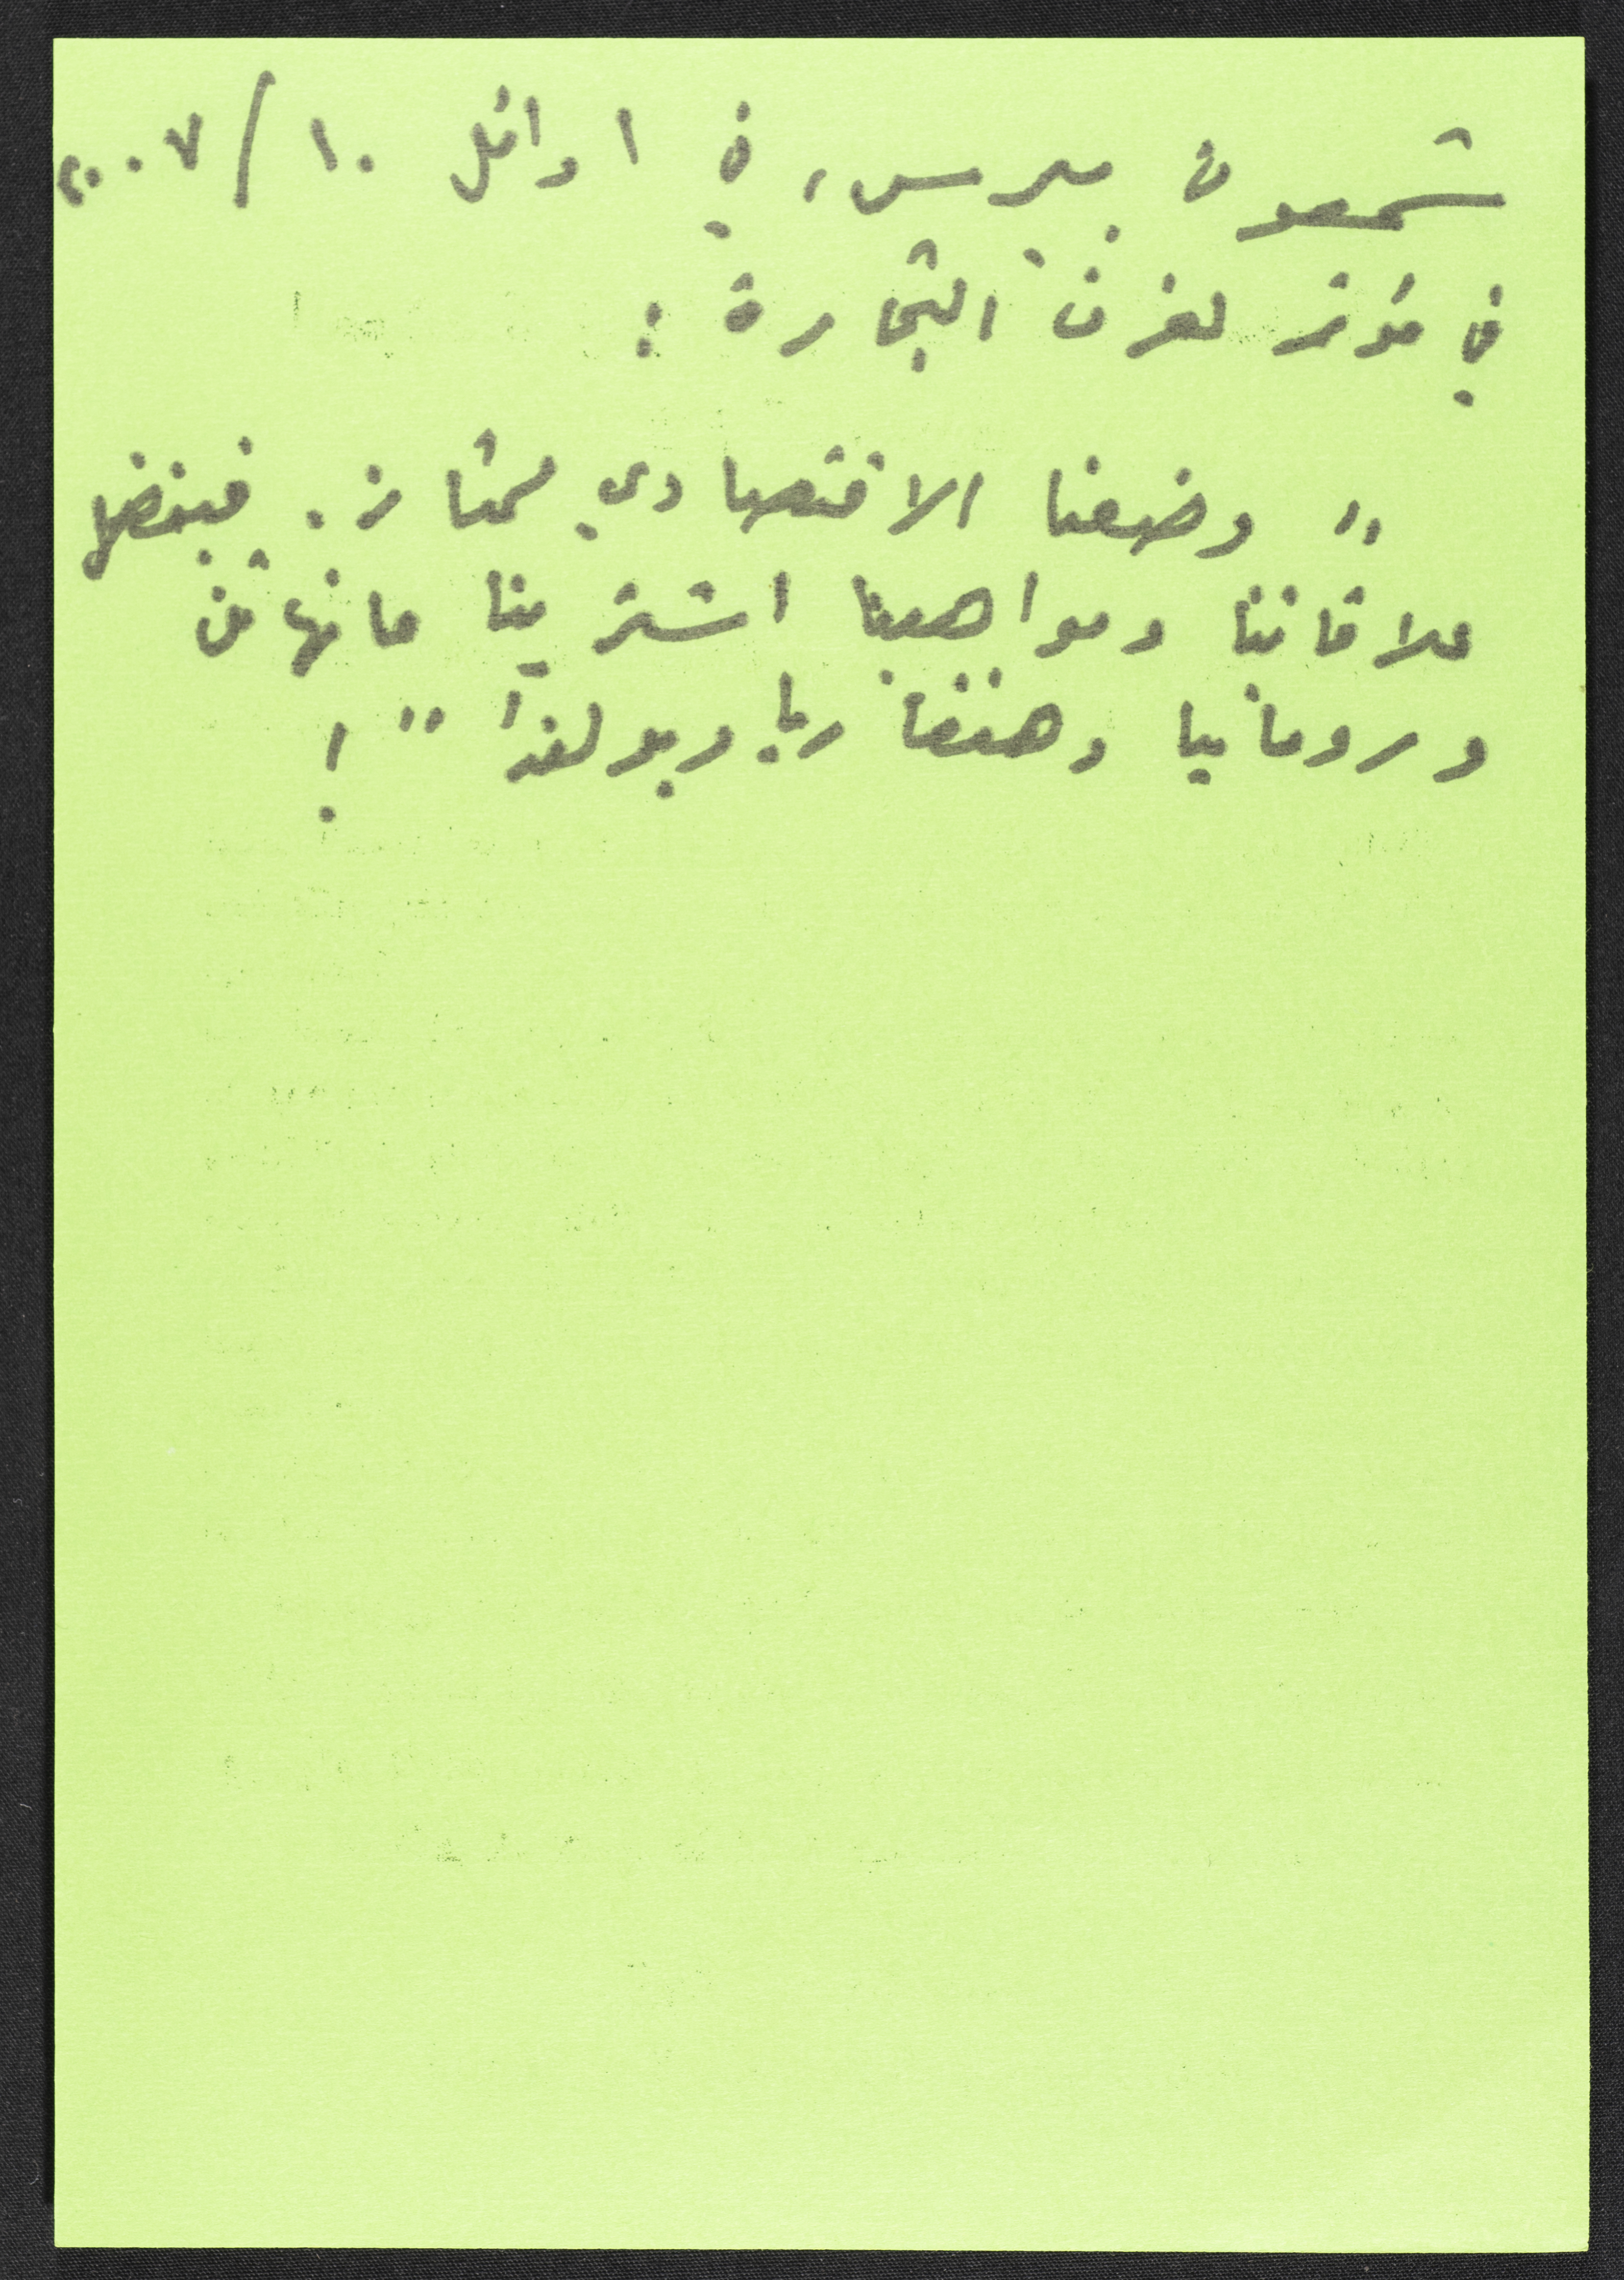 شمعون بيرس، في اوائل ١٠/٢٠٠٧
في مؤتمر لغرف التجارة :
" وضعنا الاقتصادي ممتاز. فبفضل
علاقاتنا ومواهبنا اشترينا مانهاتن
ورومانيا وهنغاريا وبولندا" !